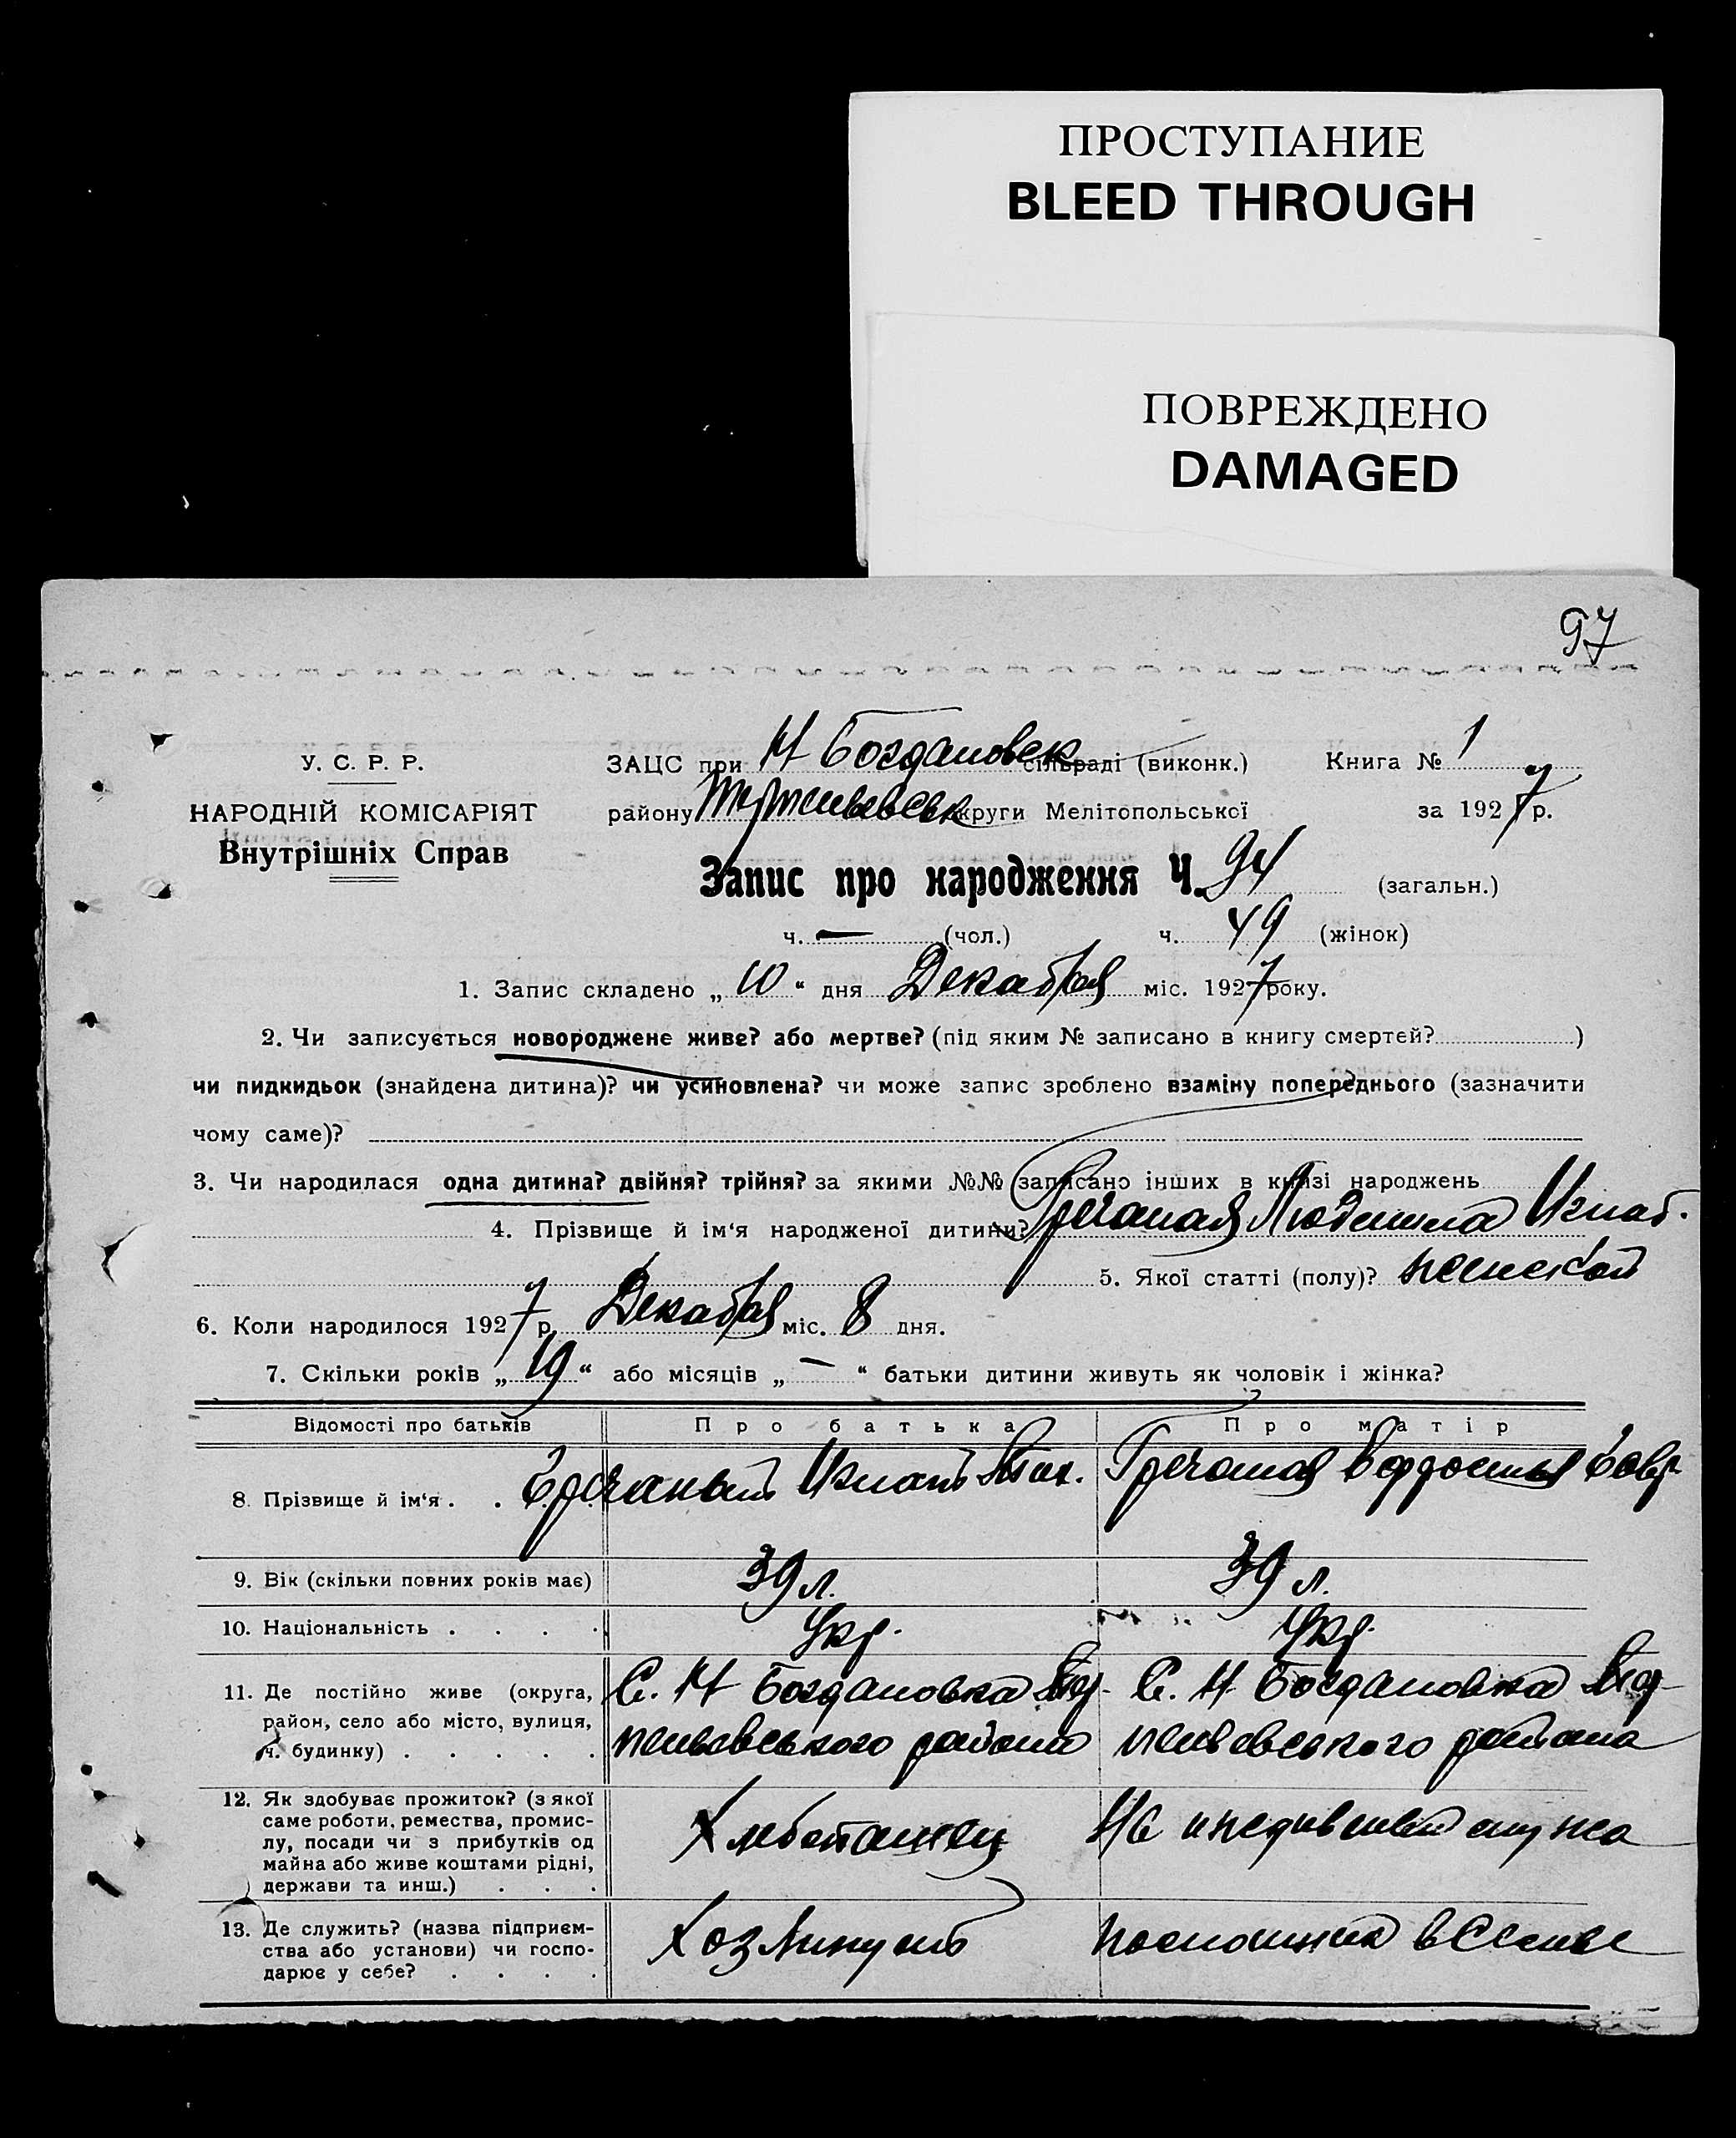 ПРОСТУПАНИЕ
BLEED THROUGH
ПОВРЕЖДЕНО
DAMAGED
97
У. С. Р. Р.
НАРОДНІЙ КОМІСАРІЯТ
Внутрішніх Справ
ЗАЦС при Н Богдановск сільраді (виконк.)
Книга № 1
району округи Мелітопольської
за 1927 р.
Запис про народження Ч. 94 (загальн.)
ч. — (чол.) ч. 49 (жінок)
1. Запис складено „ 10 “ дня Декабря міс. 1927 року.
2. Чи записується новороджене живе? або мертве? (під яким № записано в книгу смертей? )
чи пидкидьок (знайдена дитина)? чи усиновлена? чи може запис зроблено взаміну попереднього (зазначити
чому саме)?
3. Чи народилася одна дитина? двійня? трійня? за якими №№ записано інших в книзі народжень
4. Прізвище й ім‘я народженої дитини? Гречаная Людмила Игнат.
5. Якої статті (полу)? женской
6. Коли народилося 1927 р. Декабря міс. 8 дня.
7. Скільки років „ 19 “ або місяців „ — “ батьки дитини живуть як чоловік і жінка?
Відомості про батьків Про батька Про матір
8. Прізвище й ім‘я . . Гречаный Игнат Гречаная
9. Вік (скільки повних років має) 39 л. 39 л.
10. Національність . . . . Укр. Укр.
11. Де постійно живе (округа,
район, село або місто, вулиця,
ч. будинку) . . . . .
С. Н Богдановка
района
С. Н Богдановка
района
12. Як здобуває прожиток? (з якої
саме роботи, ремества, промис-
лу, посади чи з прибутків од
майна або живе коштами рідні,
держави та инш.) . . .
Хлебопашец
На иждивении мужа
13. Де служить? (назва підприєм-
ства або установи) чи госпо-
дарює у себе? . . . .
помощница в Семье